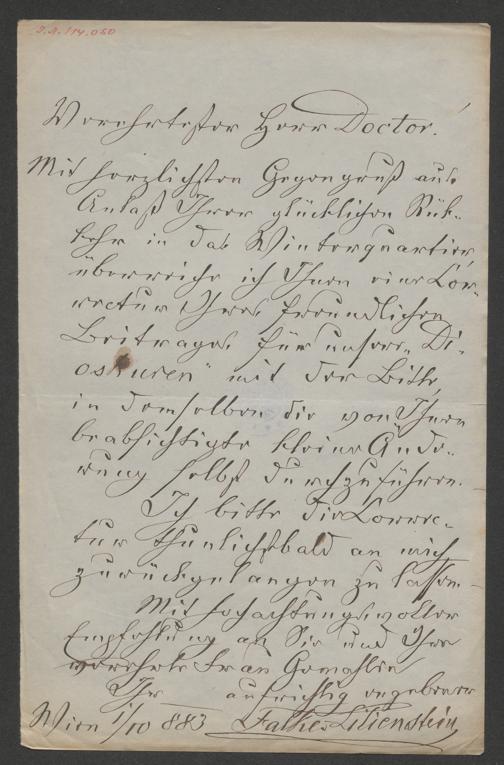 I.N. 114.050
Verehrtester Herr Doctor!
Mit herzlichstem Gegengruß aus
Anlaß Ihrer glücklichen Rük-
kehr in das Winterquartier,
überreiche ich Ihnen eine Cor-
rectur Ihres freundlichen
Beitrages für unsere „Di-
oskuren" mit der Bitte,
in demselben die von Ihnen
beabsichtigte kleine Ände-
rung selbst durchzuführen.
Ich bitte die Correc-
tur thunlichst bald an mich
zurückgelangen zu lassen.
Mit hochachtungsvoller
Empfehlung an Sie und Ihre
verehrte Frau Gemahlin
Ihr aufrichtig ergebener
Wien 1/10 883 Falke-Lilienstein